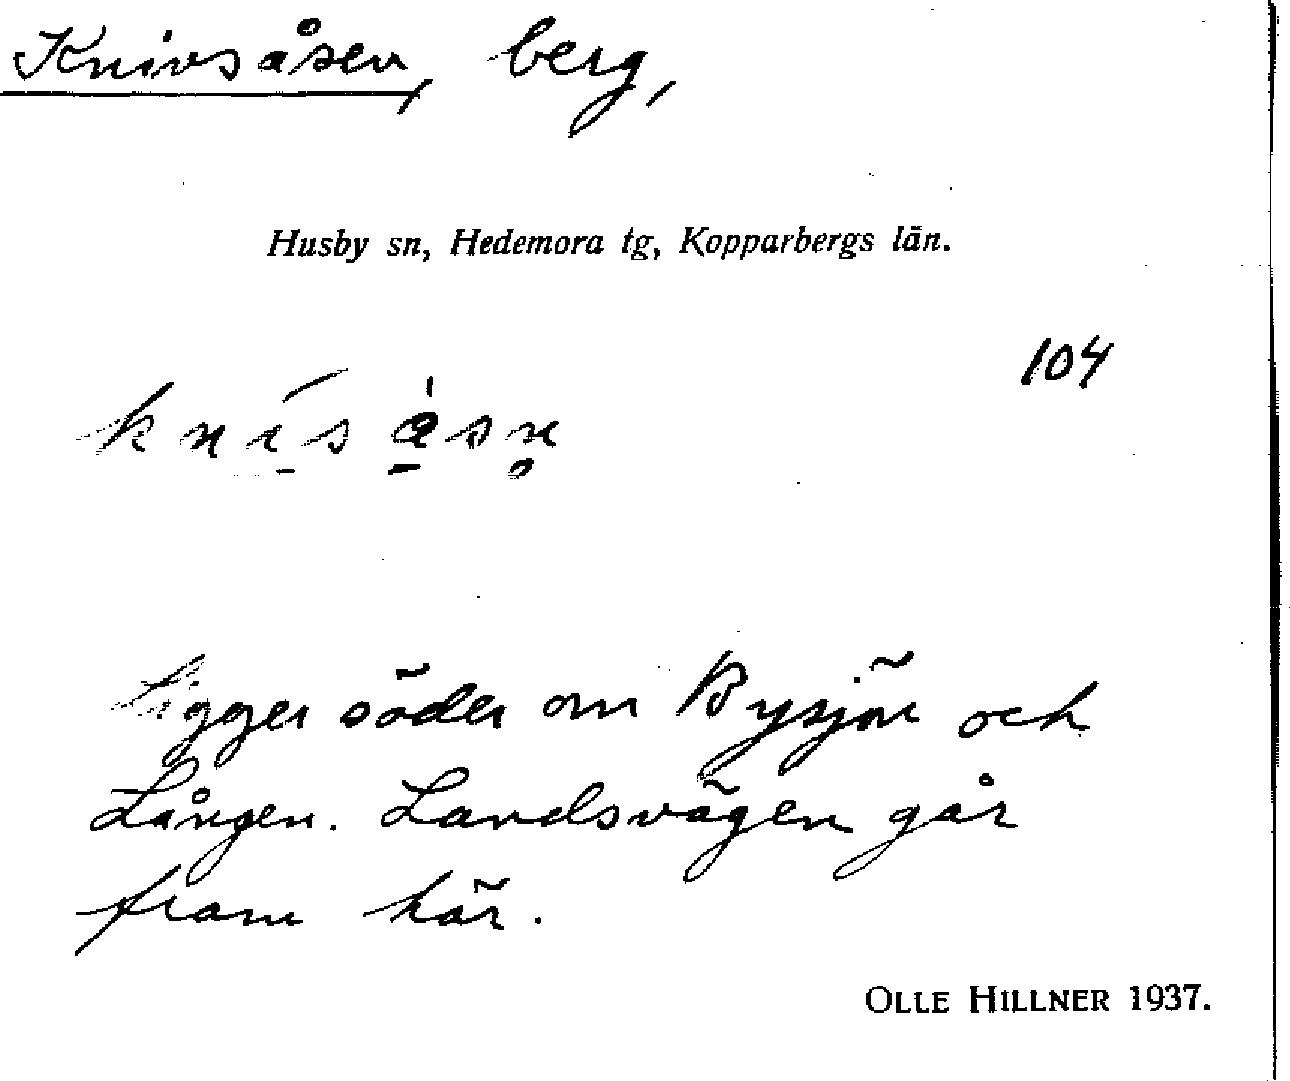 Knivsåsen, berg,
Husby sn, Hedemora tg, Kopparbergs län.
104
Ligger söder om Bysjön och
Lången. Landsvägen går
fram här.
OLLE HILLNER 1937.